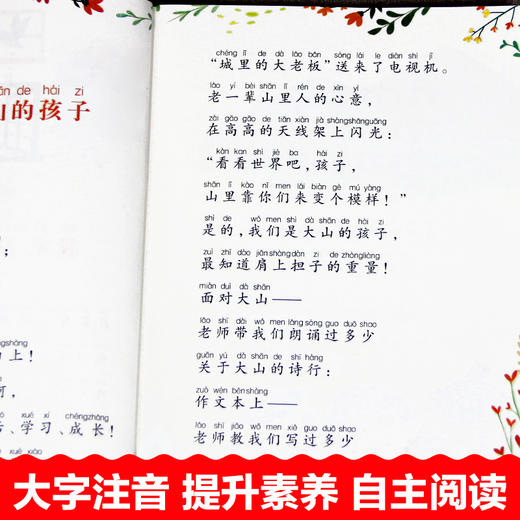 ān de hái zi
山的孩子
；
ngshàng
上！
可，
ó xué xí chéngzhǎng
舌、学习、成长！
ǒ xué xiào
chéng lǐ de dà lǎo bǎn sòng lái le diàn shì jī
“城里的大老板”送来了电视机。
lǎo yí bèi shān lǐ rén de xīn yì
老一辈山里人的心意，
zài gāo gāo de tiān xiàn jià shàngshǎnguāng
在高高的天线架上闪光：
kàn kan shì jiè ba hái zi
“看看世界吧，孩子，
shān lǐ kào nǐ men lái biàn gè mú yàng
山里靠你们来变个模样！”
shì de wǒ men shì dà shān de hái zi
是的，我们是大山的孩子，
zuì zhī dào jiānshàngdàn zi de zhòngliàng
最知道肩上担子的重量！
miàn duì dà shān
面对大山——
lǎo shī dài wǒ men lǎng sòng guo duō shao
老师带我们朗诵过多少
guān yú dà shān de shī háng
关于大山的诗行：
zuò wén běnshàng
作文本上——
lǎo shī jiāo wǒ men xiě guo duō shao
老师教我们写过多少
大字注音 提升素养 自主阅读